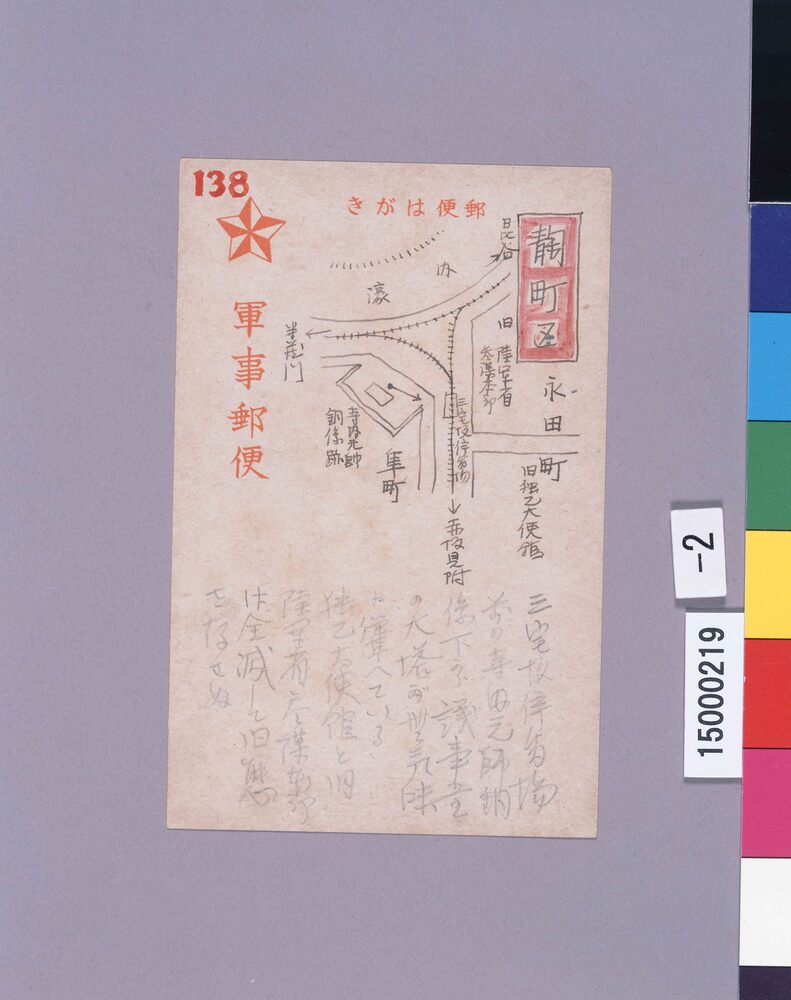 138
郵便はがき
軍事郵便
麹町区
日比谷
内
濠
旧陸軍省
参謀本部
永田町
旧独乙大使館
三宅坂停留場
赤坂見附
半蔵門
寺内元帥
銅像跡
隼町
三宅坂停留場
前の寺内元帥銅
像下から議事堂
の大塔が無気味
に聳へている
独乙大使館と旧
陸軍省参謀本部
は全滅して旧態
を存せぬ
-2
15000219